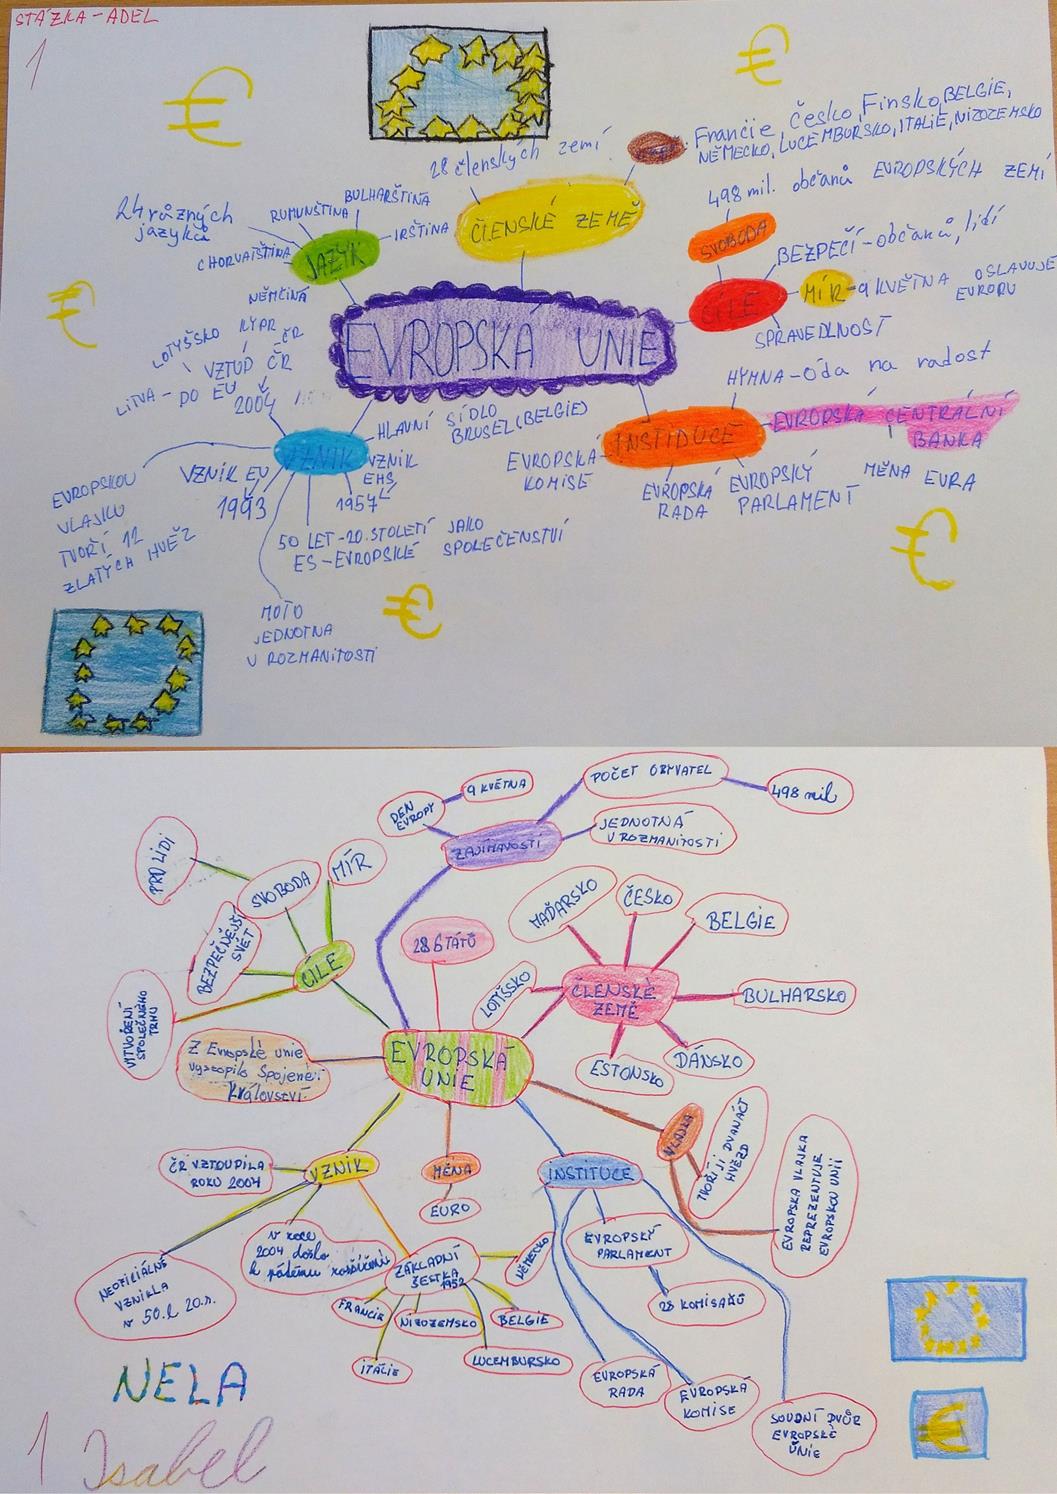 STÁZKA-ADEL
1
€
€
28 členských zemí
Francie Česko, Finsko, BELGIE,
NĚMECKO, LUCEMBURSKO, ITALIE, NIZOZEMSKO
ČLENSKÉ ZEMĚ
498 mil. občanů EVROPSKÝCH ZEMÍ
24 různých
jazyků
RUMUNŠTINA
BULHARŠTINA
IRŠTINA
CHORVATŠTINA
JAZYK
NĚMČINA
SVOBODA
BEZPEČÍ-občanů, lidí
CÍLE
MÍR-9 KVĚTNA OSLAVUJE
EVROPU
SPRAVEDLNOST
€
EVROPSKÁ UNIE
LOTYŠSKO KYPR ČR
VZTUP ČR
LITVA - DO EU
2004
HYMNA-Óda na radost
INSTIDUCE
EVROPSKÁ CENTRÁLNÍ
BANKA
MĚNA EURA
EVROPSKÁ
KOMISE
EVROPSKÁ
RADA
EVROPSKÝ
PARLAMENT
HLAVNÍ SÍDLO
BRUSEL (BELGIE)
VZNIK
VZNIK
EHS
1957
VZNIK EU
1993
EVROPSKOU
VLAJKU
TVOŘÍ 12
ZLATÝCH HVĚZ
50 LET-20. STOLETÍ JAKO
ES-EVROPSKÉ SPOLEČENSTVÍ
€
€
MOTO
JEDNOTNA
V ROZMANITOSTI
9 KVĚTNA
DEN
EVROPY
POČET OBYVATEL
498 mil
ZAJÍMAVOSTI
JEDNOTNÁ
V ROZMANITOSTI
PRO LIDI
SVOBODA
MÍR
BEZPEČNĚJŠÍ
SVĚT
CÍLE
VYTVOŘENÍ
SPOLEČNÉHO
TRHU
28 STÁTŮ
MAĎARSKO
ČESKO
BELGIE
LOTIŠSKO
ČLENSKÉ
ZEMĚ
BULHARSKO
ESTONSKO
DÁNSKO
Z Evropské unie
vystopilo Spojené
království.
EVROPSKÁ
UNIE
VLAJKA
TVOŘÍ JI DVANÁCT
HVĚZD
EVROPSKÁ VLAJKA
REPREZENTUJE
EVROPSKOU UNII
ČR VZTOUPILA
ROKU 2004
VZNIK
MĚNA
EURO
INSTITUCE
NEOFICIÁLNĚ
VZNIKLA
v 50.l 20.s.
v roce
2004 došlo
k pátému rozšíření
ZÁKLADNÍ
ŠESTKA
1952
NĚMECKO
FRANCIE
NIZOZEMSKO
BELGIE
ITÁLIE
LUCEMBURSKO
EVROPSKÝ
PARLAMENT
28 KOMISAŘŮ
EVROPSKÁ
RADA
EVROPSKÁ
KOMISE
SOUDNÍ DVŮR
EVROPSKÉ
UNIE
€
NELA
1 Isabel